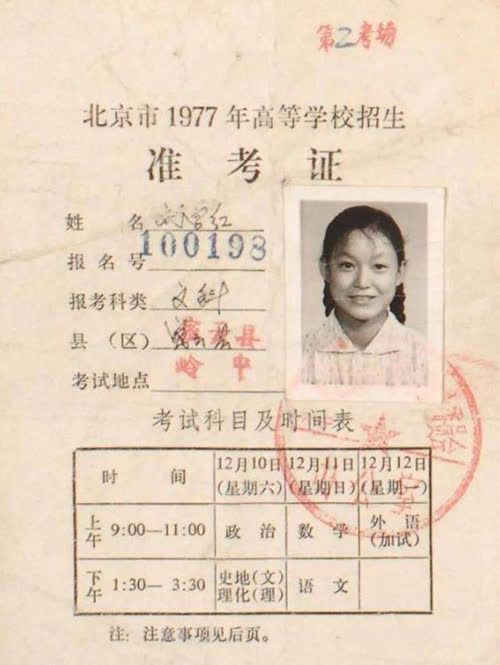 第2考场
北京市1977年高等学校招生
准考证
姓 名 刘学红
报名号 100198
报考科类 文科
县(区) 密云县
考试地点 岭中
考试科目及时间表
时 间 12月10日(星期六) 12月11日(星期日) 12月12日(星期一)
上午 9:00—11:00 政治 数学 外语(加试)
下午 1:30—3:30 史地(文)理化(理) 语文
注:注意事项见后页。